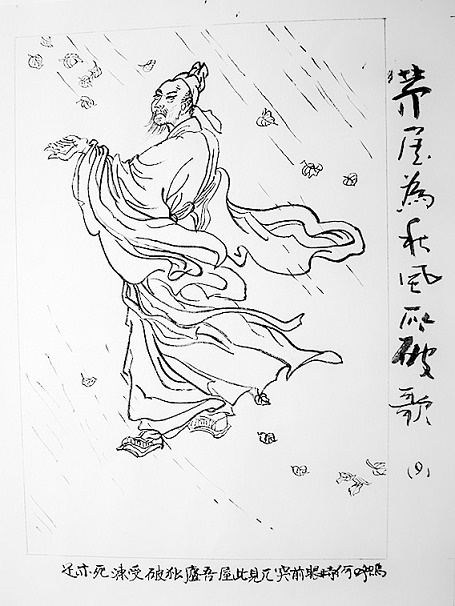 茅屋為秋風所破歌 (9)
嗚呼何時眼前突兀見此屋吾廬独破受凍死亦足